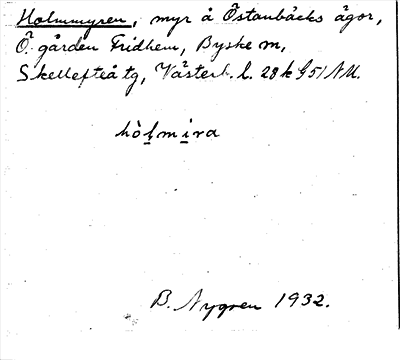 Holmmyren, myr å Östanbäcks ägor,
Ö. gården Fridhem, Byske m,
Skellefteå tg, Västerb. l. 28 k § 51 NM.
hòlmira
B. Nygren 1932.